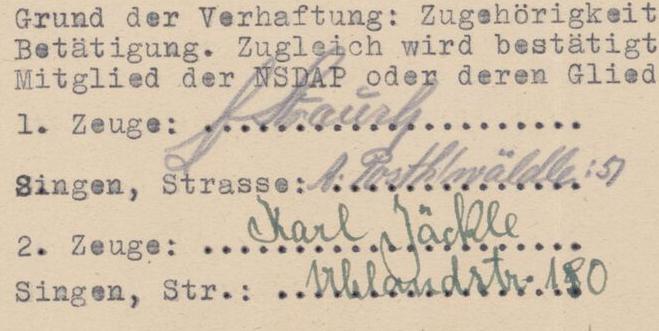 Grund der Verhaftung: Zugehörigkeit
Betätigung. Zugleich wird bestätigt
Mitglied der NSDAP oder deren Glied
1. Zeuge: ..........................
Singen, Strasse: ..................
2. Zeuge: Karl Jäckle
Singen, Str.: Uhlandstr.